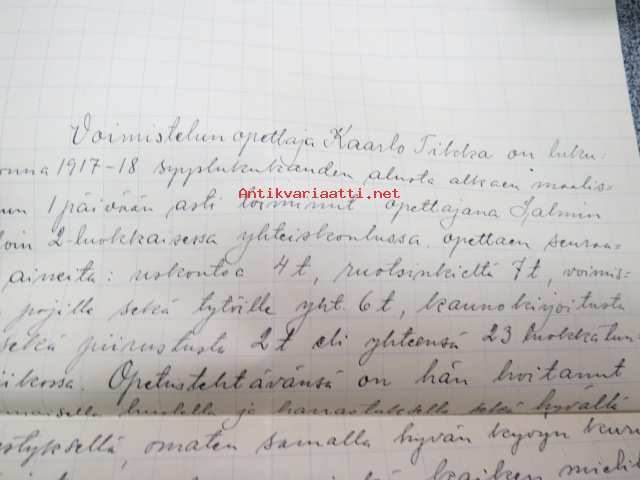 Voimistelun opettaja Kaarlo Tikka on luku-
onna 1917-18 syyslukukauden alusta alkaen maalis-
Antikvariaatti.net
un 1 päivään asti toiminut opettajana Salmin
loin 2-luokkaisessa yhteiskoulussa, opettaen seuraa-
aineita: uskontoa 4 t, ruotsinkieltä 7 t, voimis-
pojille sekä tytöille yht. 6 t, kaunokirjoitusta
sekä piirustusta 2 t eli yhteensä 23 luokkatun-
iikossa. Opetustehtävänsä on hän hoitanut
maisella huolella ja harrastuksella sekä hyvällä
estyksellä, omaten samalla hyvän kyvyn kuri
kaiken